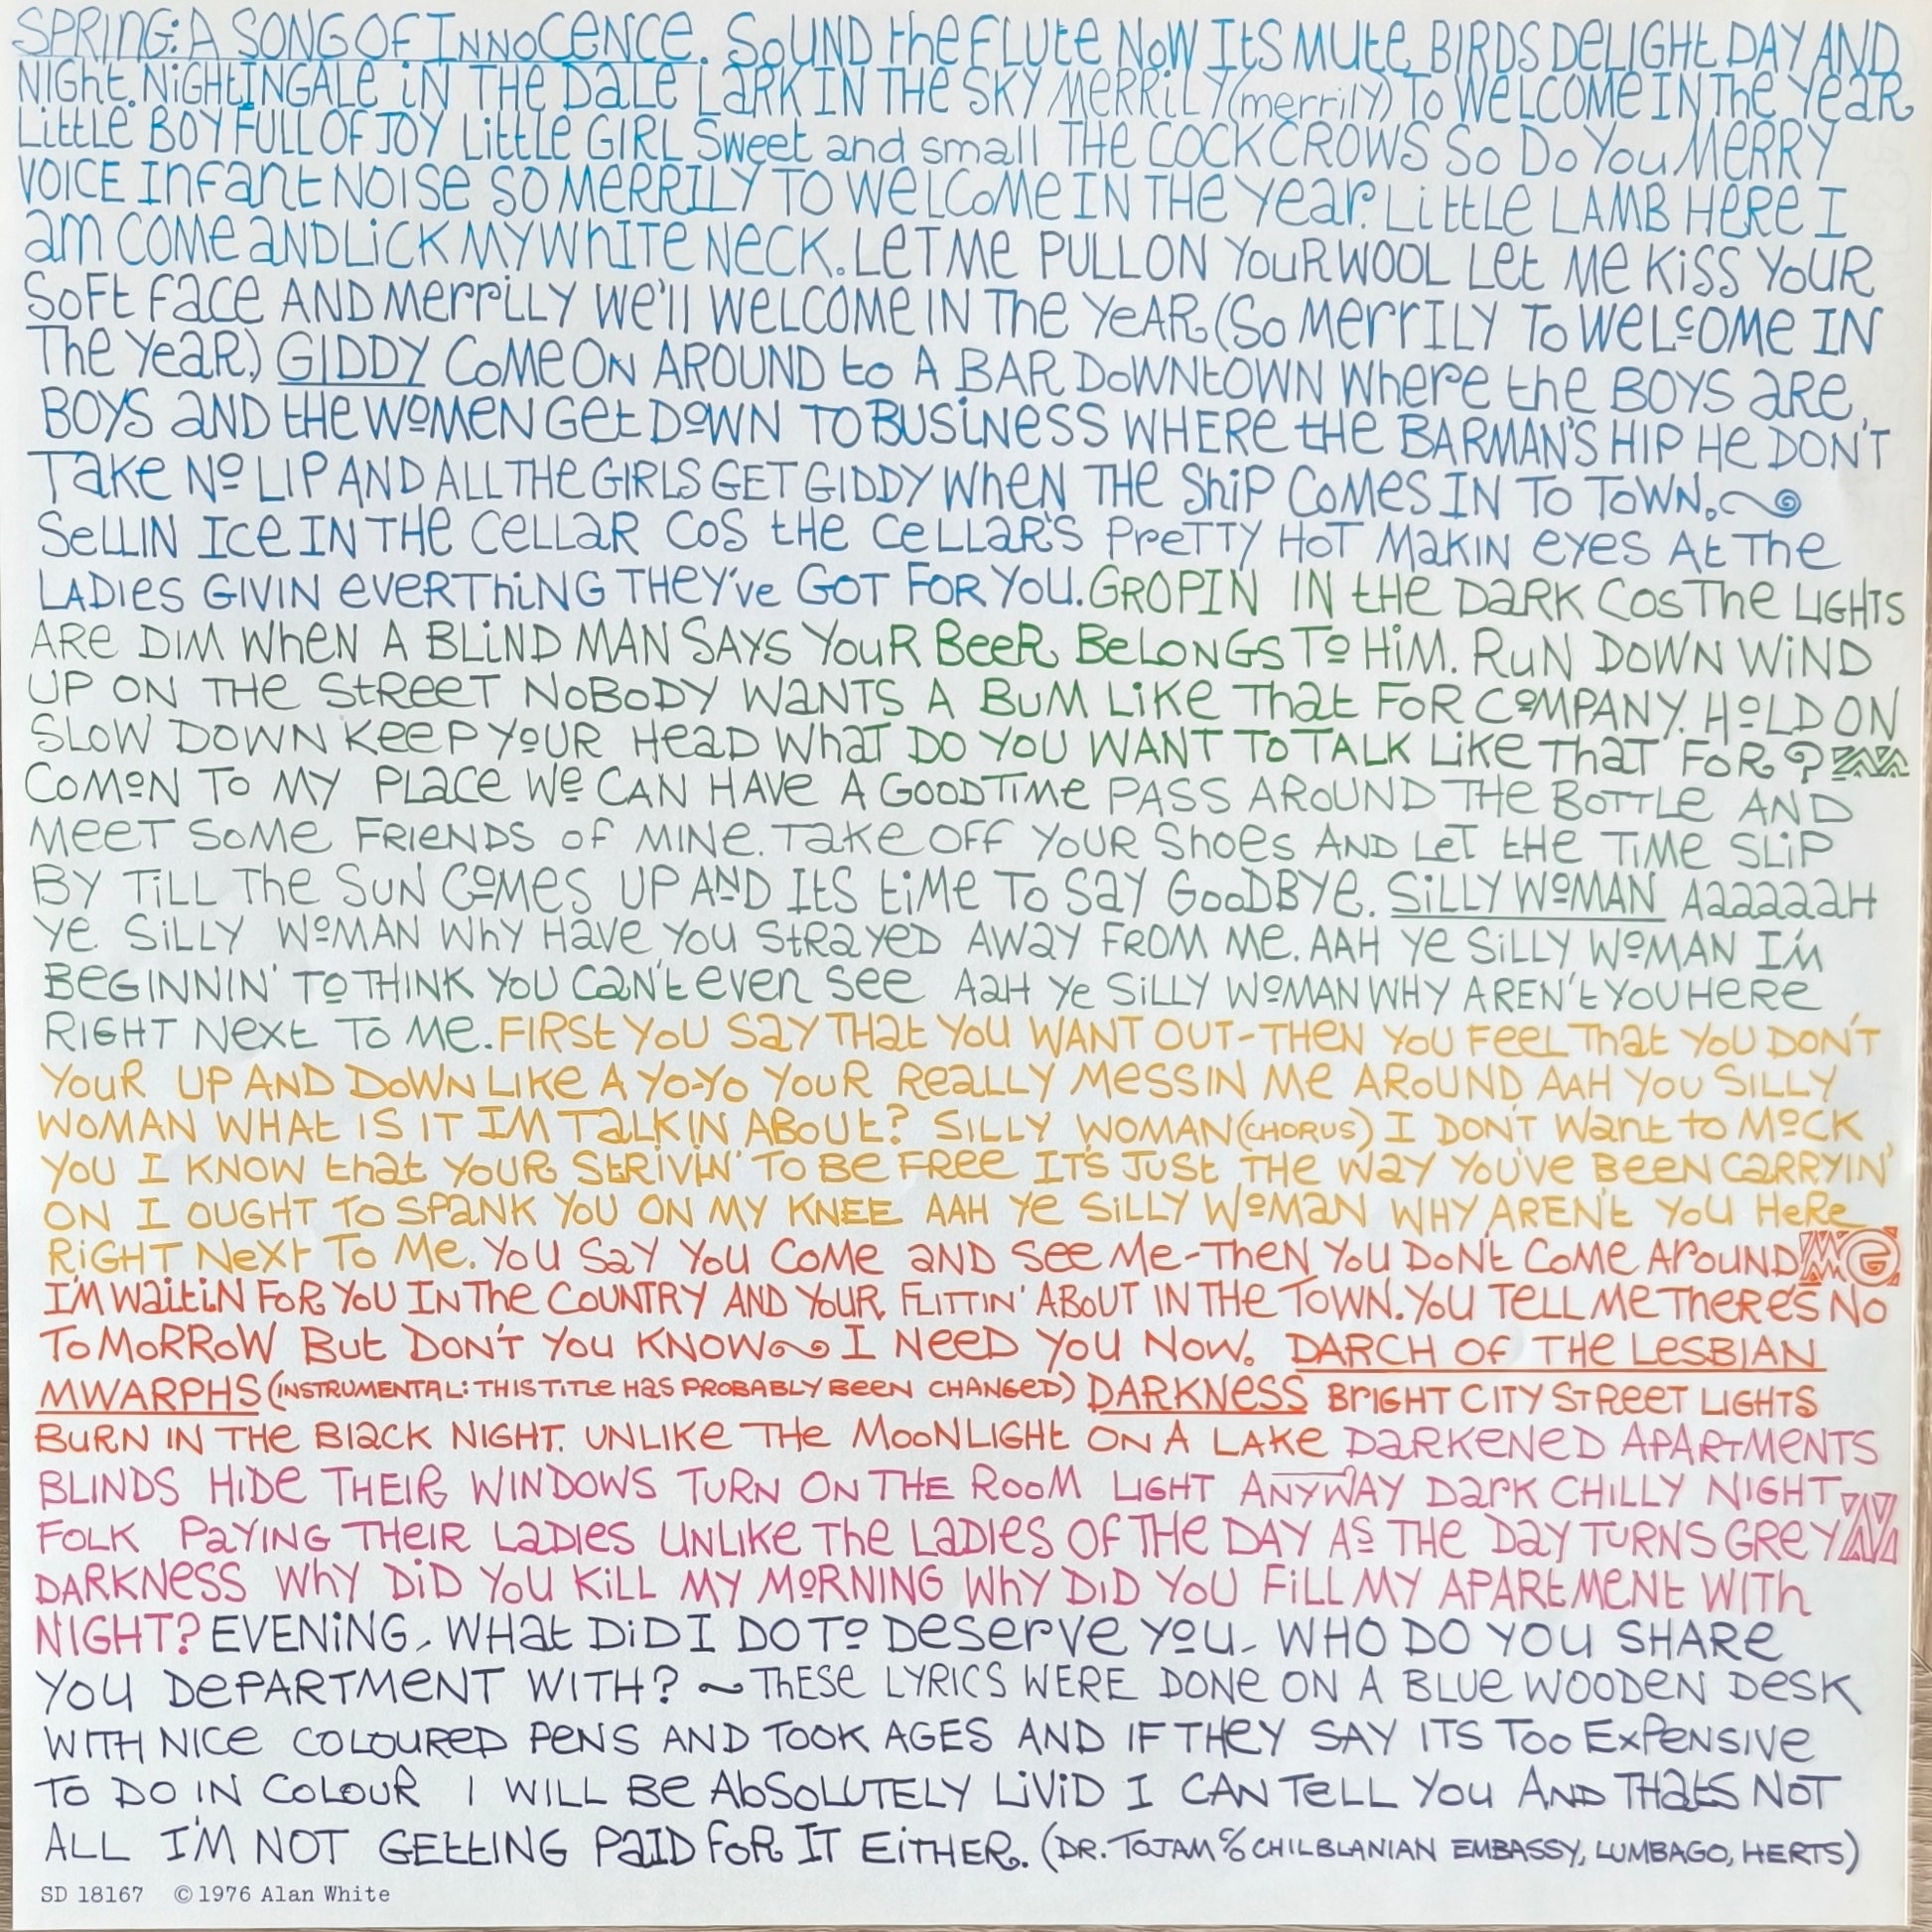 SPRING: A SONG OF INNOCENCE. SOUND the FLUte NOW ItS MUte BIRDS DELIGHt DAY AND
NIGHt. NIGHtINGALE IN THE DALE LARK IN THE SKY MERRILY (merrily) TO WELCOME IN The YeaR
LittLe BOY FULL OF JOY LittLe GIRL Sweet and small THE COCK CROWS SO DO YOU MERRY
VOICE INFant NOISE SO MERRILY TO WELCOME IN THE Year. LittLe LAMB HERE I
am COME aND LICK MY WHITE NECK. LET ME PULL ON YOUR WOOL Let ME KISS YOUR
SOFt Face AND MerrILY We'll WELCOME IN The YeAR (SO MerrILY TO WELCOME IN
The YeaR) GIDDY COME ON AROUND to A BAR DOWNtOWN Where the BOYS aRe
BOYS aND tHe WOMEN Get DOWN TO BUSINESS WHERe tHe BARMAN'S HIP He DON'T
Take NO LIP AND ALL THe GIRLS GET GIDDY WHeN THe SHIP COMES IN TO TOWN.
SeLLIN ICe IN THe CeLLaR COS tHe CeLLaR'S PReTTY HOT MaKIN eYeS At THe
LADIeS GIVIN eveRTHING THeY've GOT FOR YOU. GROPIN IN tHe DaRK COS THe LIGHtS
ARe DIM WHeN A BLIND MAN SAYS YOuR BeeR BeLONGS TO HIM. RuN DOWN WIND
UP ON THe StReeT NOBODY WaNTS A BuM LIKe THat FOR COMPANY. HOLD ON
SLOW DOWN KeeP YOUR HeaD WhaT DO YOU WANT TO TALK LIKe THaT FOR?
COMON TO MY PLace We CAN HAVe A GOOD TIMe PASS AROUND THe BOTTLe AND
MeeT SOMe FRIeNDS OF MINe. TaKe OFF YOUR SHOeS AND LeT tHe TIMe SLIP
BY TILL THe SUN COMeS UP AND ItS tIMe TO SaY GOODBYe. SILLY WOMAN AaaaaaH
Ye SILLY WOMAN WHY HaVe YOu StRAYeD AWaY FROM Me. AAH Ye SILLY WOMAN I'M
BeGINNIN' TO THINK YOU CaN't even See AaH Ye SILLY WOMAN WHY AREN't YOU HeRe
RIGHT NeXt TO Me. FIRSt YOU SaY THat YOU WANT OUT-THeN YOU FeeL THat YOU DON'T
YOUR UP AND DOWN LIKe A YO-YO YOUR ReaLLY MeSSIN Me AROUND AAH YOU SILLY
WOMAN WHAt IS IT IM TaLKIN ABOUt? SILLY WOMAN (CHORUS) I DON'T Want to MOCK
YOU I KNOW that YOUR StRIVIN' TO Be FRee IT'S JuSt THe WaY YOU'Ve BeeN CARRYIN'
ON I OUGHT TO SPaNK YOU ON MY KNEE AAH Ye SILLY WOMaN WHY AREN't YOU HeRe
RIGHT NeXt TO Me. YOU SaY YOU COMe aND See Me-THeN YOU DON't COMe AROUND
I'M WaItIN FOR YOU IN THe COUNTRY AND YOUR FLITTIN' ABOUT IN THe TOWN. YOU TeLL Me THeRe'S NO
TOMORROW But DON'T YOU KNOW I NeeD YOU NOW. DARCH OF THe LeSBIAN
MWARPHS (INSTRUMENTAL: THIS TITLe HaS PROBABLY BeeN CHANGeD) DARKNeSS BRIGHT CITY STReeT LIGHTS
BURN IN THe BLacK NIGHT. UNLIKe THe MOONLIGHt ON A LaKe DaRKENeD APARTMeNTS
BLINDS HIDe THEIR WINDOWS TURN ON THE ROOM LIGHT ANYWAY DaRK CHILLY NIGHT
FOLK PaYING THEIR LaDIES UNLIKe THe LaDIES OF THe DAY AS THe DaY TURNS GReY
DARKNeSS WHY DID YOU KILL MY MORNING WHY DID YOU FILL MY APARtMeNt WITH
NIGHT? EVENING, WHat DID I DO TO DeSeRve YOU, WHO DO YOU SHARe
YOU DePARTMeNT WITH? ~ THESe LYRICS WERE DONe ON A BLUe WOODeN DeSK
WITH NICe COLOUReD PeNS AND TOOK AGES AND IF THeY SAY ITS TOO ExPeNSIVe
TO DO IN COLOUR I WILL Be AbSOLUTELY LIVID I CAN TeLL YOU AND THatS NOT
ALL I'M NOT GEttING PaID FOR IT EITHER. (DR. TOJAM c/o CHILBLANIAN EMBASSY, LUMBAGO, HERTS)
SD 18167 © 1976 Alan White